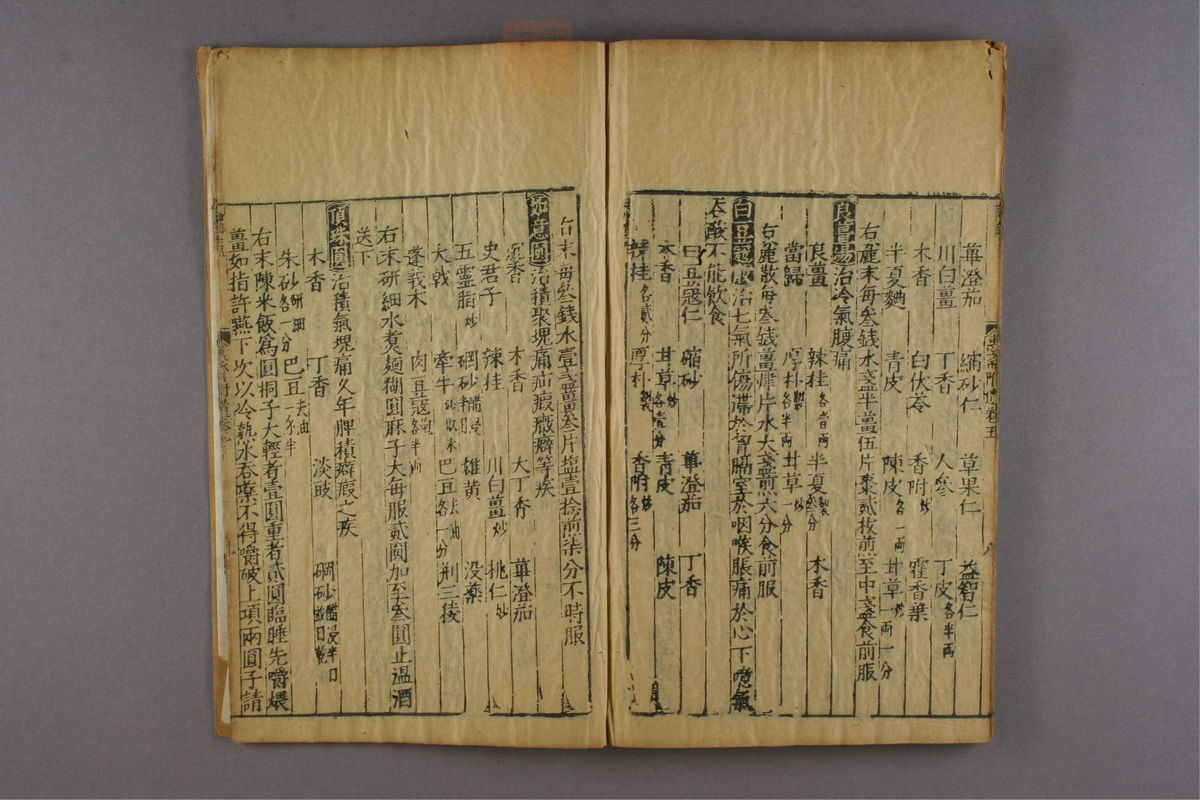 蓽澄茄 縮砂仁 草果仁 益智仁
川白薑 丁香 人參 丁皮各半兩
木香 白伏苓 香附炒 藿香葉
半夏麯 青皮 陳皮各一兩 甘草炒一兩一分
右麄末每叁錢水盞半薑伍片棗貳枚煎至中盞食前服
良薑湯治冷氣腹痛
良薑 辣桂各壹兩 半夏製叁分 木香
當歸 厚朴製各半兩 甘草炒一分
右麄散每叁錢薑肆片水大盞煎六分食前服
白豆蔻散治七氣所傷滯於胷膈窒於咽喉脹痛於心下噫氣
吞酸不能飲食
白豆寇仁 縮砂 蓽澄茄 丁香
木香 甘草炒各壹分 青皮 陳皮
辣桂各貳分 厚朴製 香附炒各三分
右末每叁錢水壹盞薑叁片塩壹捻煎柒分不時服
如意圓治積聚塊痛疝瘕癥癖等疾
沉香 木香 大丁香 蓽澄茄
史君子 辣桂 川白薑炒 桃仁炒
五靈脂炒 碙砂醋浸半日 雄黄 没藥
大戟 牽牛炒取末 巴豆去油各一分 荆三稜
蓬莪术 肉豆寇炮各半兩
右末研細水煮麺糊圓麻子大每服貳圓加至叁圓止温酒
送下
傾珠圓治積氣塊痛久年脾積癖瘕之疾
木香 丁香 淡豉 碙砂醋浸半日
朱砂研細各一分 巴豆去油一分半
右末陳米飯為圓桐子大輕者壹圓重者貳圓臨睡先嚼煨
薑如指許燕下次以冷熟水吞藥不得嚼破上項兩圓子請